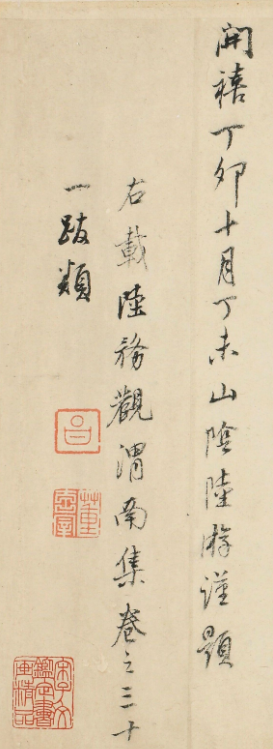 開禧丁卯十月丁未山陰陸游謹題
右載陸務觀渭南集卷之三十
一跋類